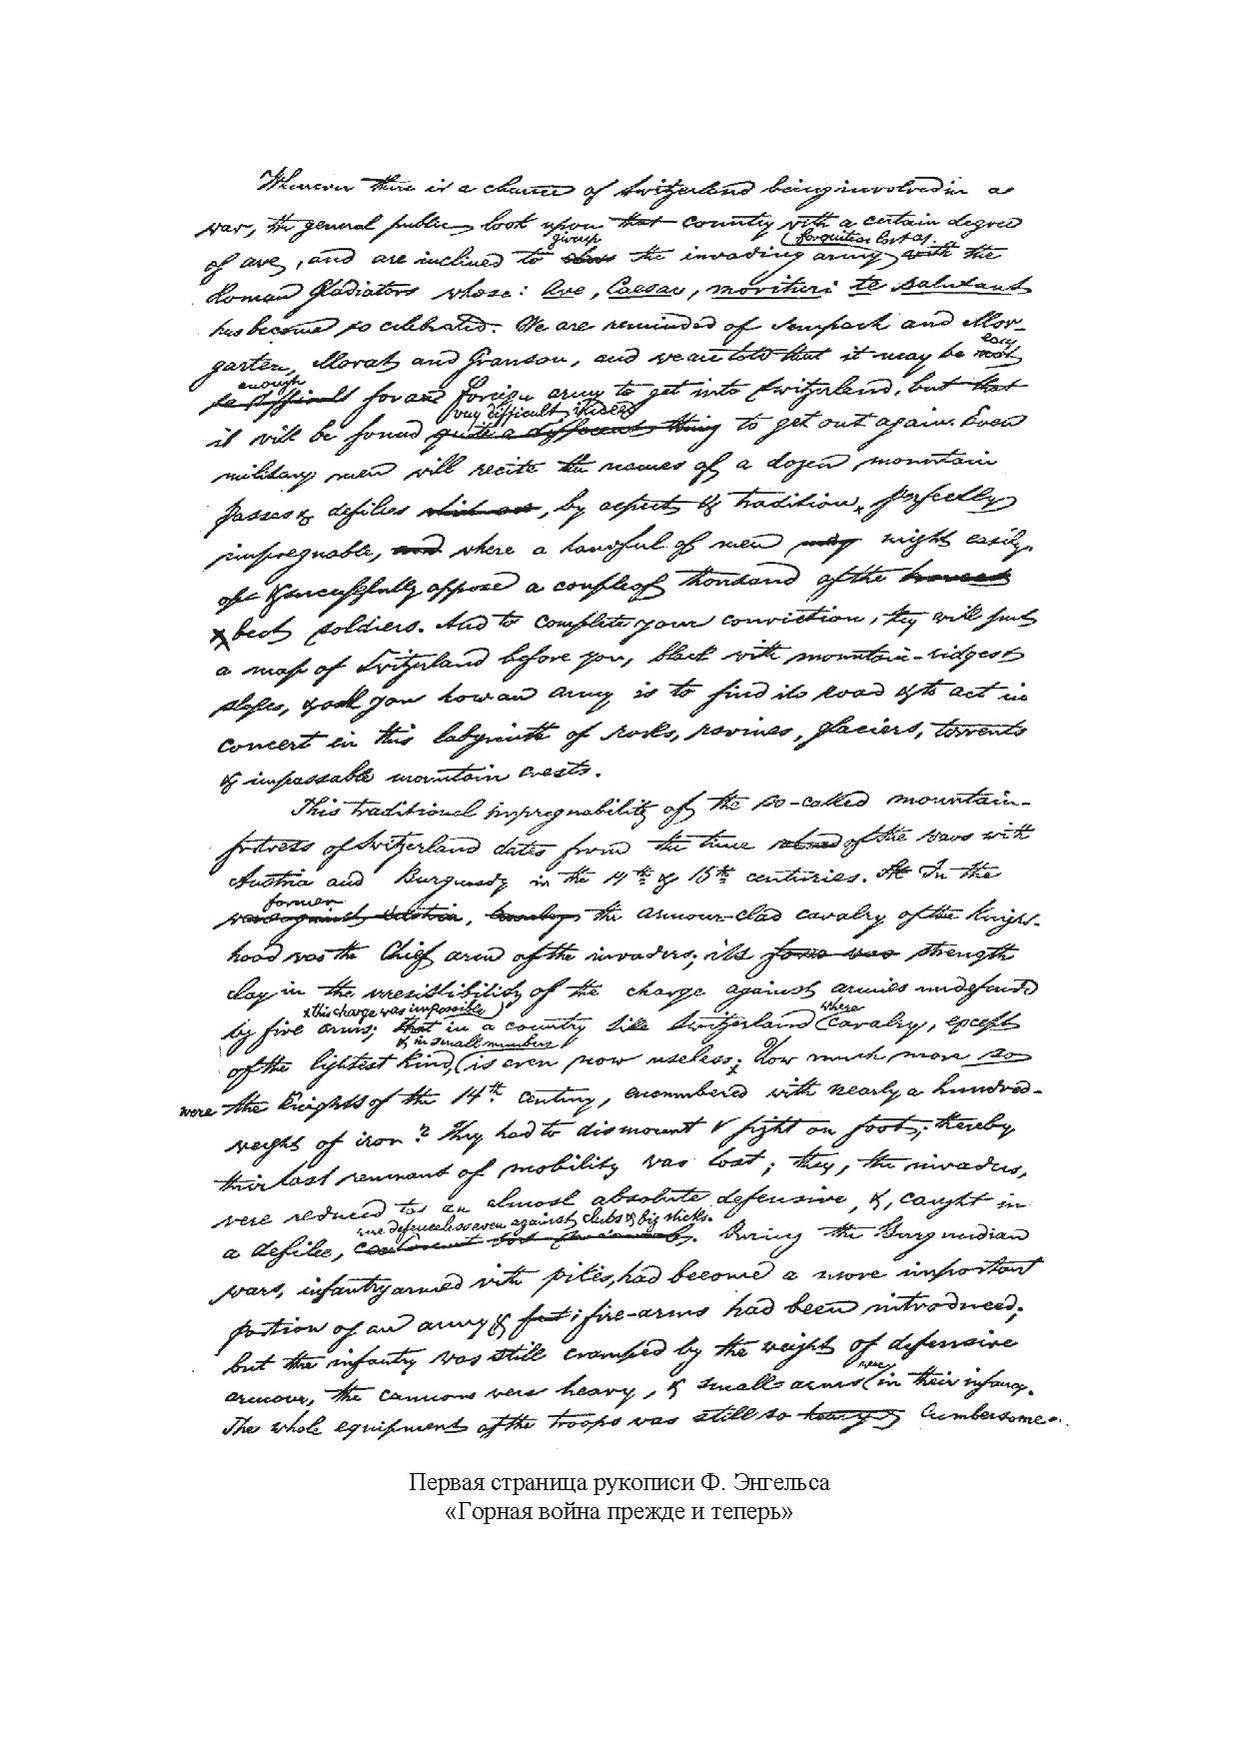 Whenever there is a chance of Switzerland being involved in a
war, the general public look upon that country with a certain degree
given
for quite as lost as
of awe, and are inclined to the invading army with the
Roman Gladiators whose: Ave, Caesar, morituri te salutant
has become so celebrated. We are reminded of Sempach and Mor-
garten, Morat and Granson, and we are told that it may be
easy
enough
for a foreign army to get into Switzerland, but that
very difficult indeed
it will be found quite a different thing to get out again. Even
military men will recite the names of a dozen mountain
passes & defiles which are, by aspect & tradition, perfectly
impregnable, and where a handful of men may might easily
& successfully oppose a couple of thousand of the
best soldiers. And to complete your conviction, they will put
a map of Switzerland before you, black with mountain-ridges &
slopes, & ask you how an army is to find its road & to act in
concert in this labyrinth of rocks, ravines, glaciers, torrents
& impassable mountain crests.
This traditional impregnability of the so-called mountain-
fortress of Switzerland dates from the time of the wars with
Austria and Burgundy in the 14th & 15th centuries. At In the
former
wars against Austria, the armour-clad cavalry of the Knight-
hood was the chief arm of the invaders; its force was strength
lay in the irresistibility of the charge against armies undefended
x this charge was impossible
where
by fire arms; that in a country like Switzerland cavalry, except
& in small numbers
of the lightest kind, is even now useless; How much more so
were the Knights of the 14th century, encumbered with nearly a hundred-
weight of iron? They had to dismount & fight on foot; thereby
their last remnant of mobility was lost; they, the invaders,
were reduced to an almost absolute defensive, &, caught in
were defenceless even against clubs & big sticks.
a defilee, During the Burgundian
wars, infantry armed with pikes, had become a more important
portion of an army & fire-arms had been introduced;
but the infantry was still cramped by the weight of defensive
were
armour, the cannons were heavy, & small-arms in their infancy.
The whole equipment of the troops was still so heavy & cumbersome
Первая страница рукописи Ф. Энгельса
«Горная война прежде и теперь»